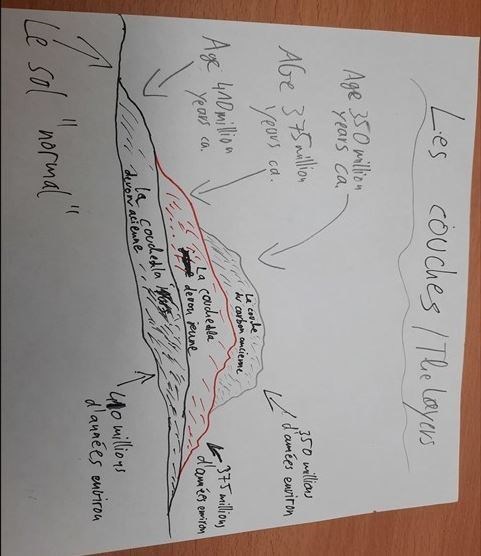 Les couches / The Layers
Age 350 million
years ca.
AGe 375 million
years ca.
Age 410 million
years ca.
La couche
du carbon ancienne
La couche dla
devon jeune
la couche dla
devon acienne
Le sol "normal"
350 millions
d'années environ
375 millions
d'années environ
410 millions
d'années environ